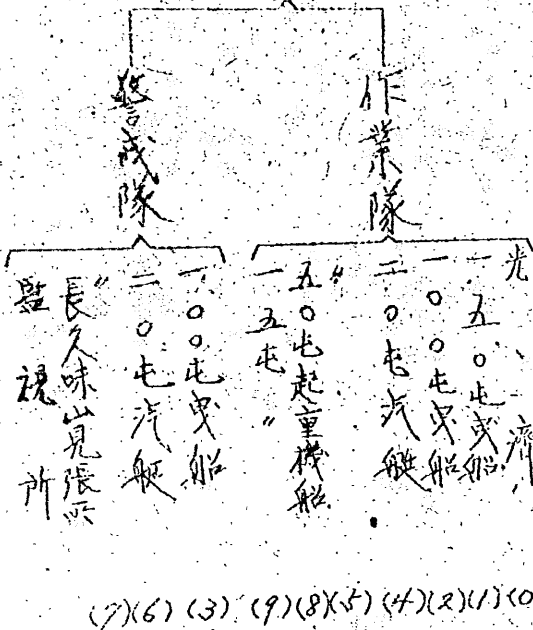 作業隊
光濟
一五〇屯曳船
一〇〇屯曳船
二〇屯汽艇
〃
五〇屯起重機船
一五屯 〃
警戒隊
一〇〇屯曳船
二〇屯汽艇
〃
長久味山見張所
監視所
(7)(6)(3)(9)(8)(5)(4)(2)(1)(0